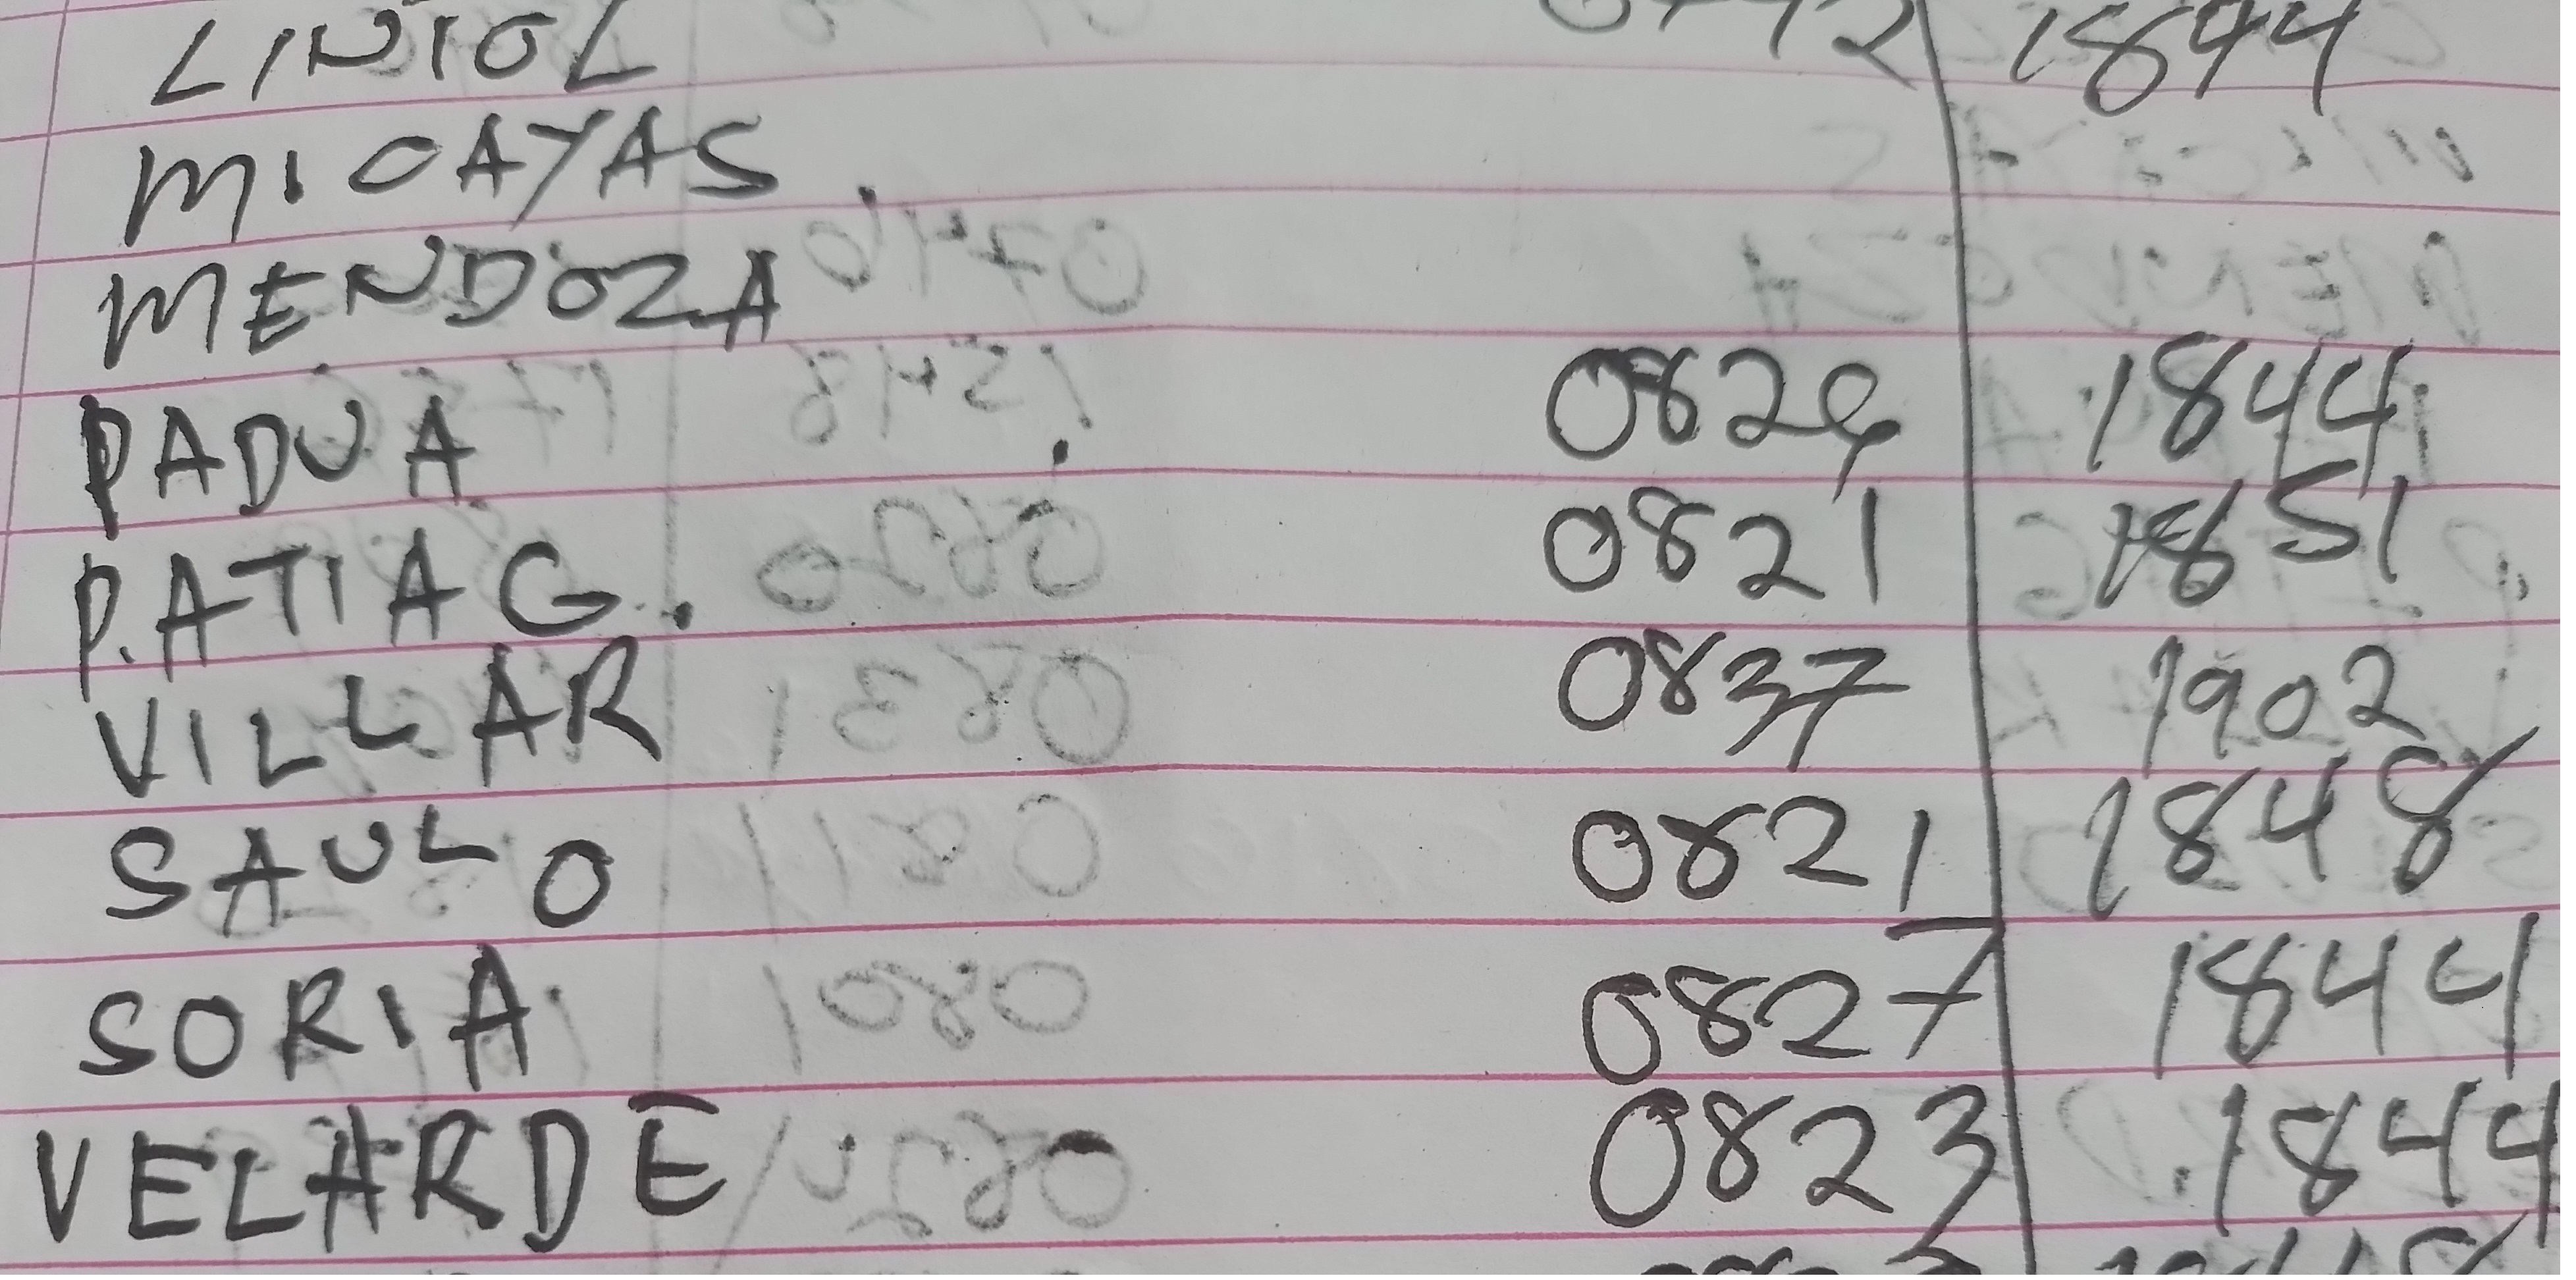 LINTOL 1844
MICAYAS
MENDOZA
PADUA 0829 1844
P.ATIAG. 0821 1851
VILLAR 0837 1902
SAULO 0821 1848
SORIA 0827 1844
VELARDE 0823 1844